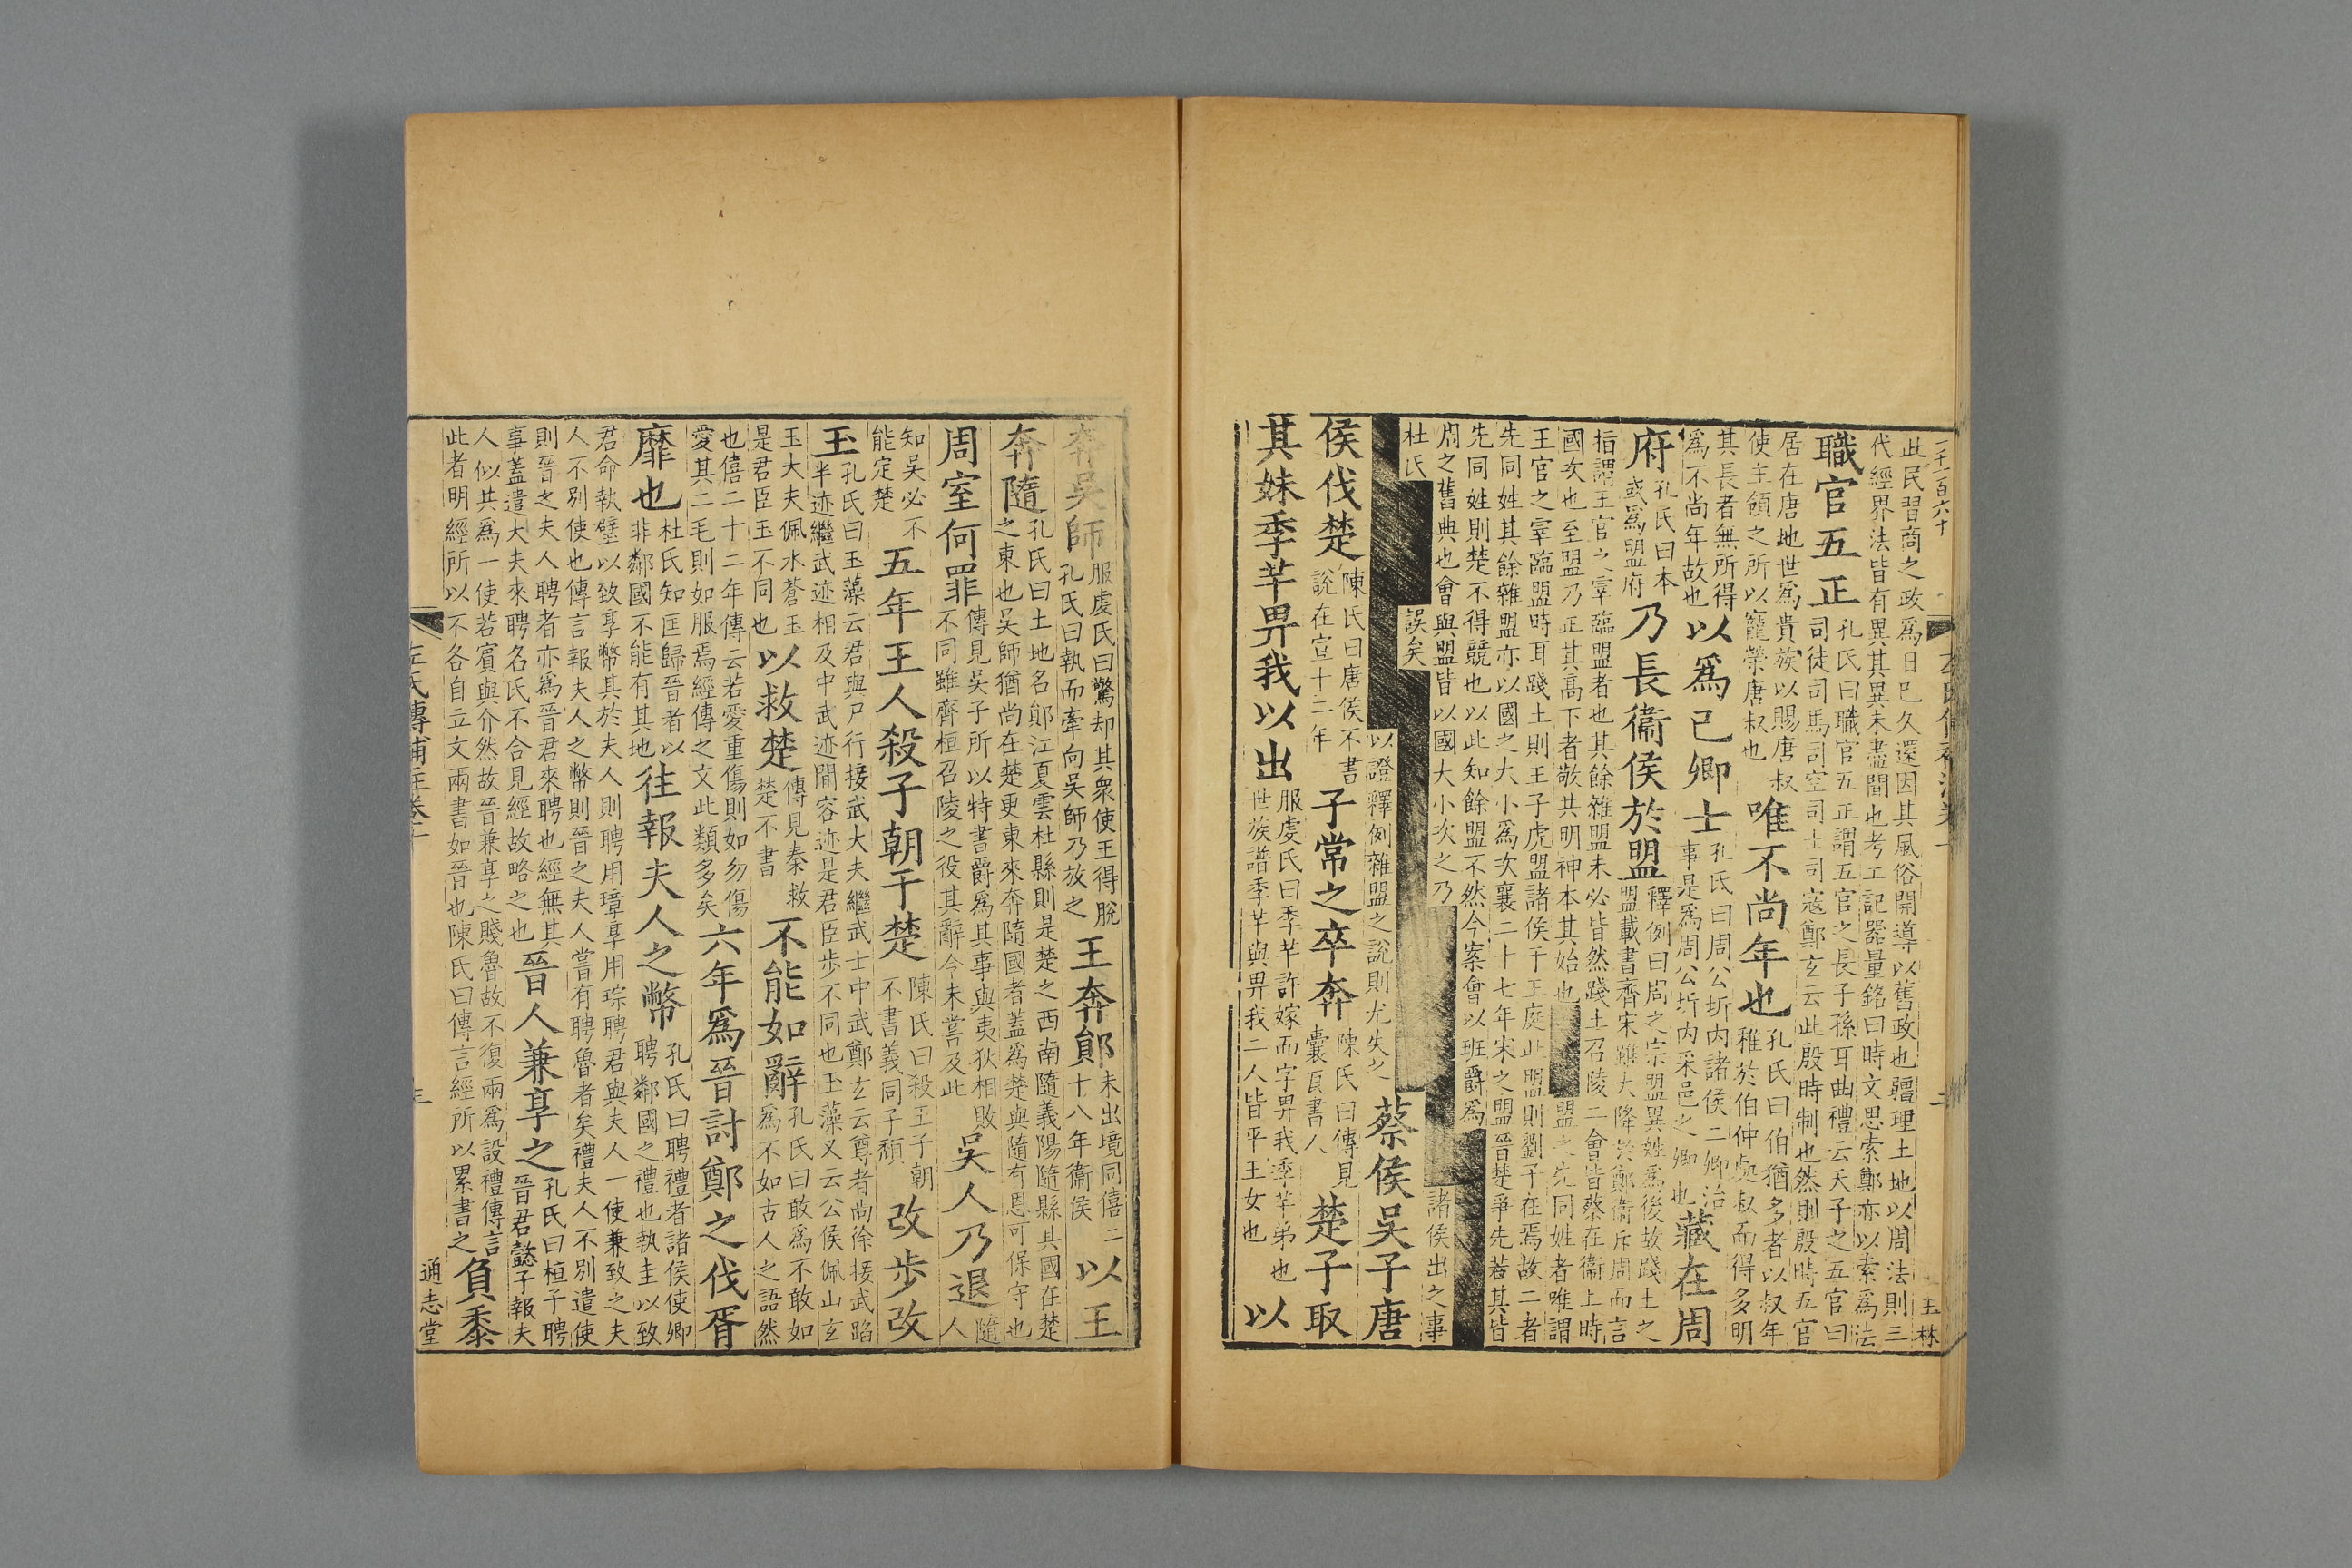 二千一百六十
左氏傳補注卷十
二
玉林
此民習商之政爲日已久還因其風俗開導以舊政也疆理土地以周法則三
代經界法皆有異其異未盡聞也考工記器量銘曰時文思索鄭亦以索爲法
職官五正
孔氏曰職官五正謂五官之長子孫耳曲禮云天子之五官曰
司徒司馬司空司士司寇鄭玄云此殷時制也然則殷時五官
居在唐地世爲貴族以賜唐叔
使主領之所以寵榮唐叔也
唯不尚年也
孔氏曰伯猶多者以叔年
稚於伯仲與叔而得多明
其長者無所得
爲不尚年故也
以爲已卿士
孔氏曰周公圻内諸侯二卿治
事是爲周公圻内采邑之卿也
藏在周
府
孔氏曰本
或爲盟府
乃長衞侯於盟
釋例曰周之宗盟異姓爲後故踐土之
盟載書齊宋雖大降於鄭衞斥周而言
指謂王官之宰臨盟者也其餘雜盟未必皆然踐土召陵二會皆蔡在衞上時
國次也至盟乃正其高下者敬共明神本其始也
盟之先同姓者唯謂
王官之宰臨盟時耳踐土則王子虎盟諸侯于王庭此盟則劉子在焉故二者
先同姓其餘雜盟亦以國之大小爲次襄二十七年宋之盟晉楚爭先若其皆
先同姓則楚不得競也以此知餘盟不然今案會以班爵爲
周之舊典也會與盟皆以國大小次之乃
諸侯出之事
杜氏
誤矣
以證釋例雜盟之說則尤失之
蔡侯吳子唐
侯伐楚
陳氏曰唐侯不書
說在宣十二年
子常之卒奔
陳氏曰傳見
囊瓦書人
楚子取
其妹季芊畀我以出
服虔氏曰季芊許嫁而字畀我季芊弟也
世族譜季芊與畀我二人皆平王女也
以
奔吳師
服虔氏曰驚却其衆使王得脫
孔氏曰執而牽向吳師乃放之
王奔鄖
未出境同僖二
十八年衞侯
以王
奔隨
孔氏曰土地名鄖江夏雲杜縣則是楚之西南隨義陽隨縣其國在楚
之東也吳師猶尚在楚更東來奔隨國者蓋爲楚與隨有恩可保守也
周室何罪
傳見吳子所以特書爵爲其事與夷狄相敗
不同雖齊桓召陵之役其辭今未嘗及此
吳人乃退
隨
人
知吳必不
能定楚
五年王人殺子朝于楚
陳氏曰殺王子朝
不書義同子頹
改步改
玉
孔氏曰玉藻云君與尸行接武大夫繼武士中武鄭玄云尊者尚徐接武蹈
半迹繼武迹相及中武迹間容迹是君臣步不同也玉藻又云公侯佩山玄
玉大夫佩水蒼玉
是君臣玉不同也
以救楚
傳見秦救
楚不書
不能如辭
孔氏曰敢爲不敢如
爲不如古人之語然
也僖二十二年傳云若愛重傷則如勿傷
愛其二毛則如服焉經傳之文此類多矣
六年爲晉討鄭之伐胥
靡也
杜氏知匡歸晉者以
非鄰國不能有其地
往報夫人之幣
孔氏曰聘禮者諸侯使卿
聘鄰國之禮也執圭以致
君命執璧以致享幣其於夫人則聘用璋享用琮聘君與夫人一使兼致之夫
人不別使也傳言報夫人之幣則晉之夫人嘗有聘魯者矣禮夫人不別遣使
則晉之夫人聘者亦爲晉君來聘也經無其
事蓋遣大夫來聘名氏不合見經故略之也
晉人兼享之
孔氏曰桓子聘
晉君懿子報夫
人似共爲一使若賓與介然故晉兼享之賤魯故不復兩爲設禮傳言
此者明經所以不各自立文兩書如晉也陳氏曰傳言經所以累書之
負黍
左氏傳補注卷十
三
通志堂